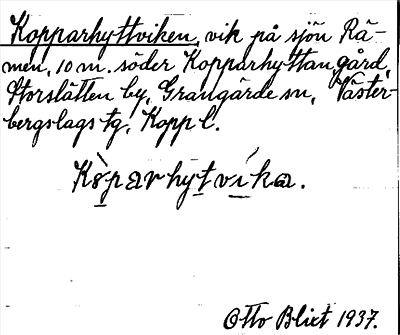 Kopparhyttviken, vik på sjön Rä-
men, 10 m. söder Kopparhyttan gård,
Storslätten by, Grangärde sn, Väster-
bergslags tg, Kopp l.
Kòparhytvíka.
Otto Blixt 1937.